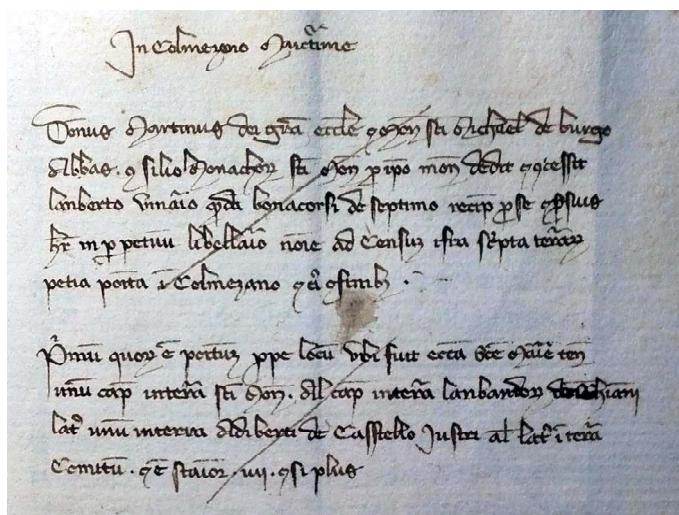 In Colmezano Maritime
Donus Martinus dei gra eccle mon sti Michael de burgo
Abbas. 9silio Monachor sti Mon p ipo mon dedit 9cessit
lanberto vinaio qdā bonacorsi de septimo recip p se suis
hr in p petuū libellaio noie ad Censuz ifra scpta terraz
petia posita i Colmezano 9finibz.
Pimū quoz ē pectuz ppe locū vbi fuit eccā sce Marie ten
unū cap interrā sti Mon. Al cap interrā lanbardor
lat unū interra Aldiberti de Casstello Justri al lat i terrā
Comitū. 9 ē staior. uij. 9si plus